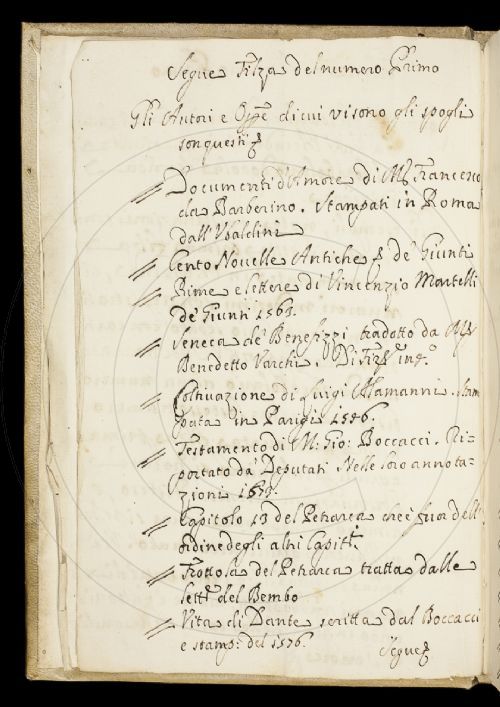 Segue Filza del numero Primo
Gli Autori e Opp̃e di cui vi sono gli spogli
son questi
Documenti d'Amore di M. Francesco
da Barberino. Stampati in Roma
dall'Vbaldini
Cento Nouelle Antiche de' Giunti
Rime e lettere di Vincenzio Martelli
de' Giunti 1563.
Seneca de' Benefizzi tradotto da
Benedetto Varchi. Di Firẽ in 4.º
Coltiuazione di Luigi Alamanni. Stam
pata in Parigi 1546.
Testamento di M: Gio: Boccacci. Ri=
portato da' Deputati Nelle loro annota=
zioni
Capitolo 13 del Petrarca che è fuor dell'
ordine degli altri Capitt.
Frottola del Petrarca tratta dalle
lettẽ del Bembo
Vita di Dante scritta dal Boccacci
e stamp: del 1576.
Segue